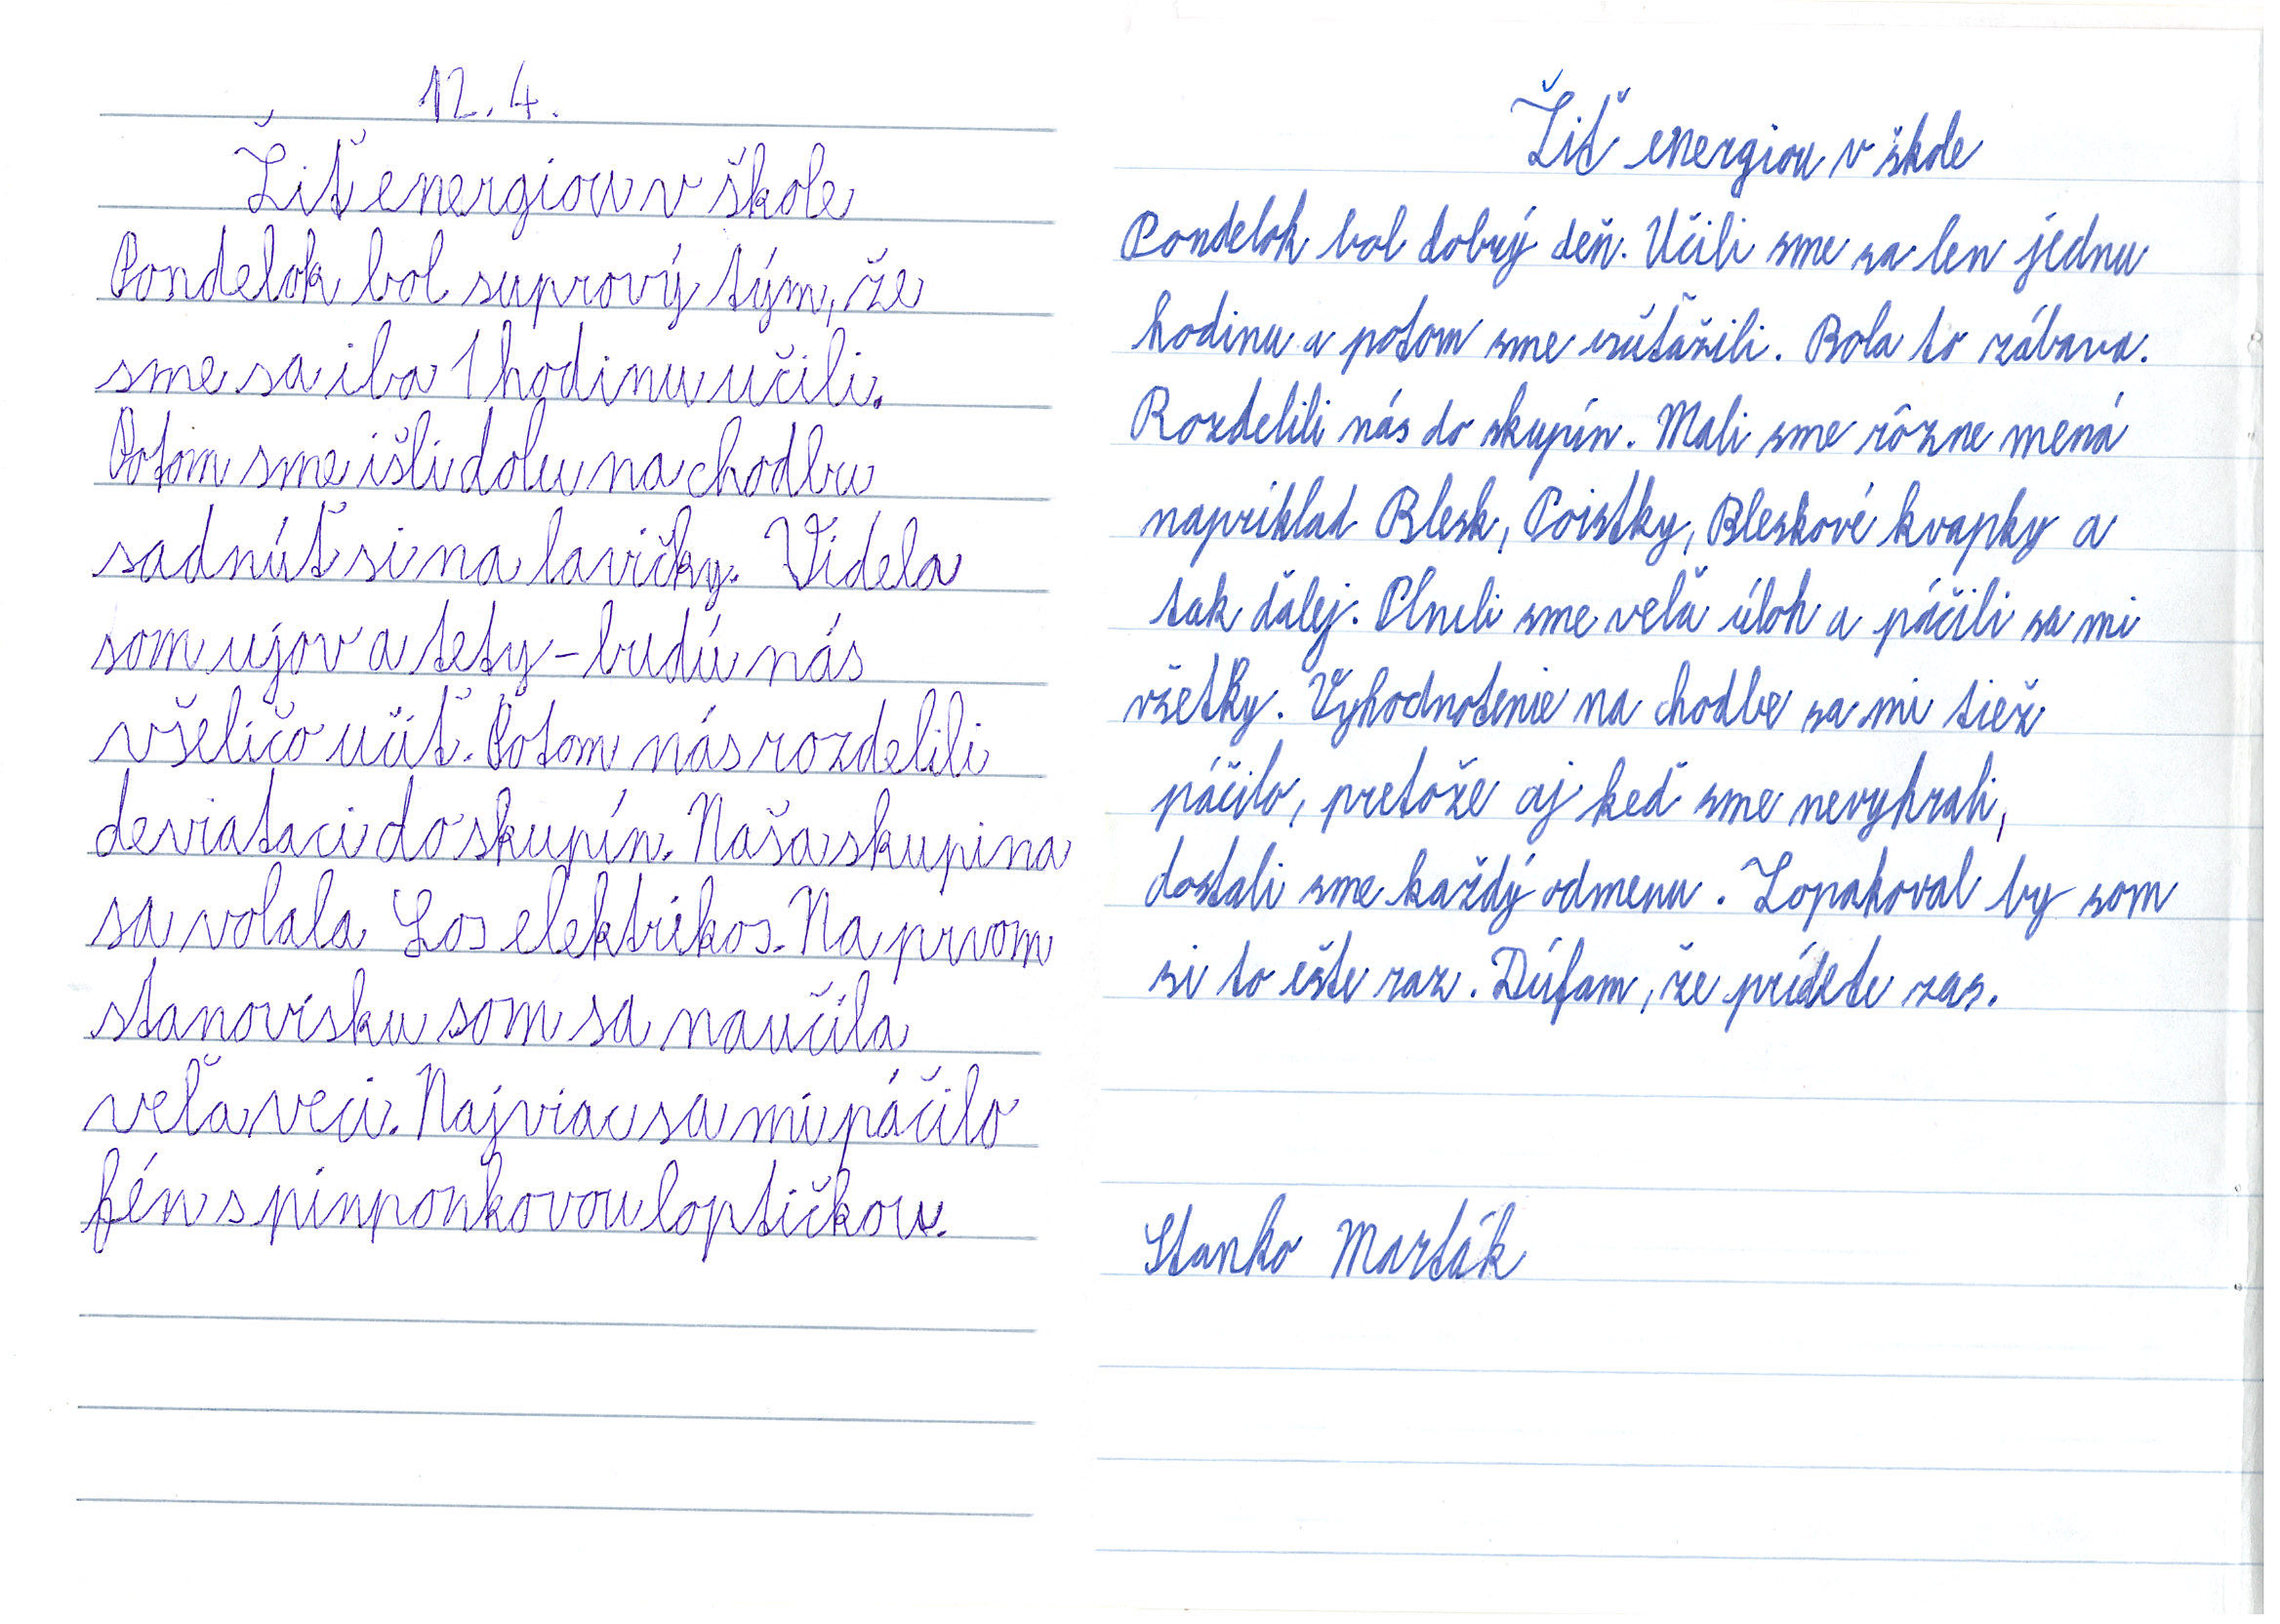 12. 4.
Žiť energiou v škole
Pondelok bol suprový tým, že
sme sa iba 1 hodinu učili.
Potom sme išli dolu na chodbu
sadnúť si na lavičky. Videla
som ujov a tety - budú nás
všeličo učiť. Potom nás rozdelili
deviataci do skupín. Naša skupina
sa volala Los elektrikos. Na prvom
stanovisku som sa naučila
veľa veci. Najviac sa mi páčilo
fén s pinponkovou loptičkou.
Žiť energiou v škole
Pondelok bol dobrý deň. Učili sme sa len jednu
hodinu a potom sme súťažili. Bola to zábava.
Rozdelili nás do skupín. Mali sme rôzne mená
napríklad Blesk, Poistky, Bleskové kvapky a
tak ďalej. Plnili sme veľa úloh a páčili sa mi
všetky. Vyhodnotenie na chodbe sa mi tiež
páčilo, pretože aj keď sme nevyhrali,
dostali sme každý odmenu. Zopakoval by som
si to ešte raz. Dúfam, že prídete zas.
Stanko Marták